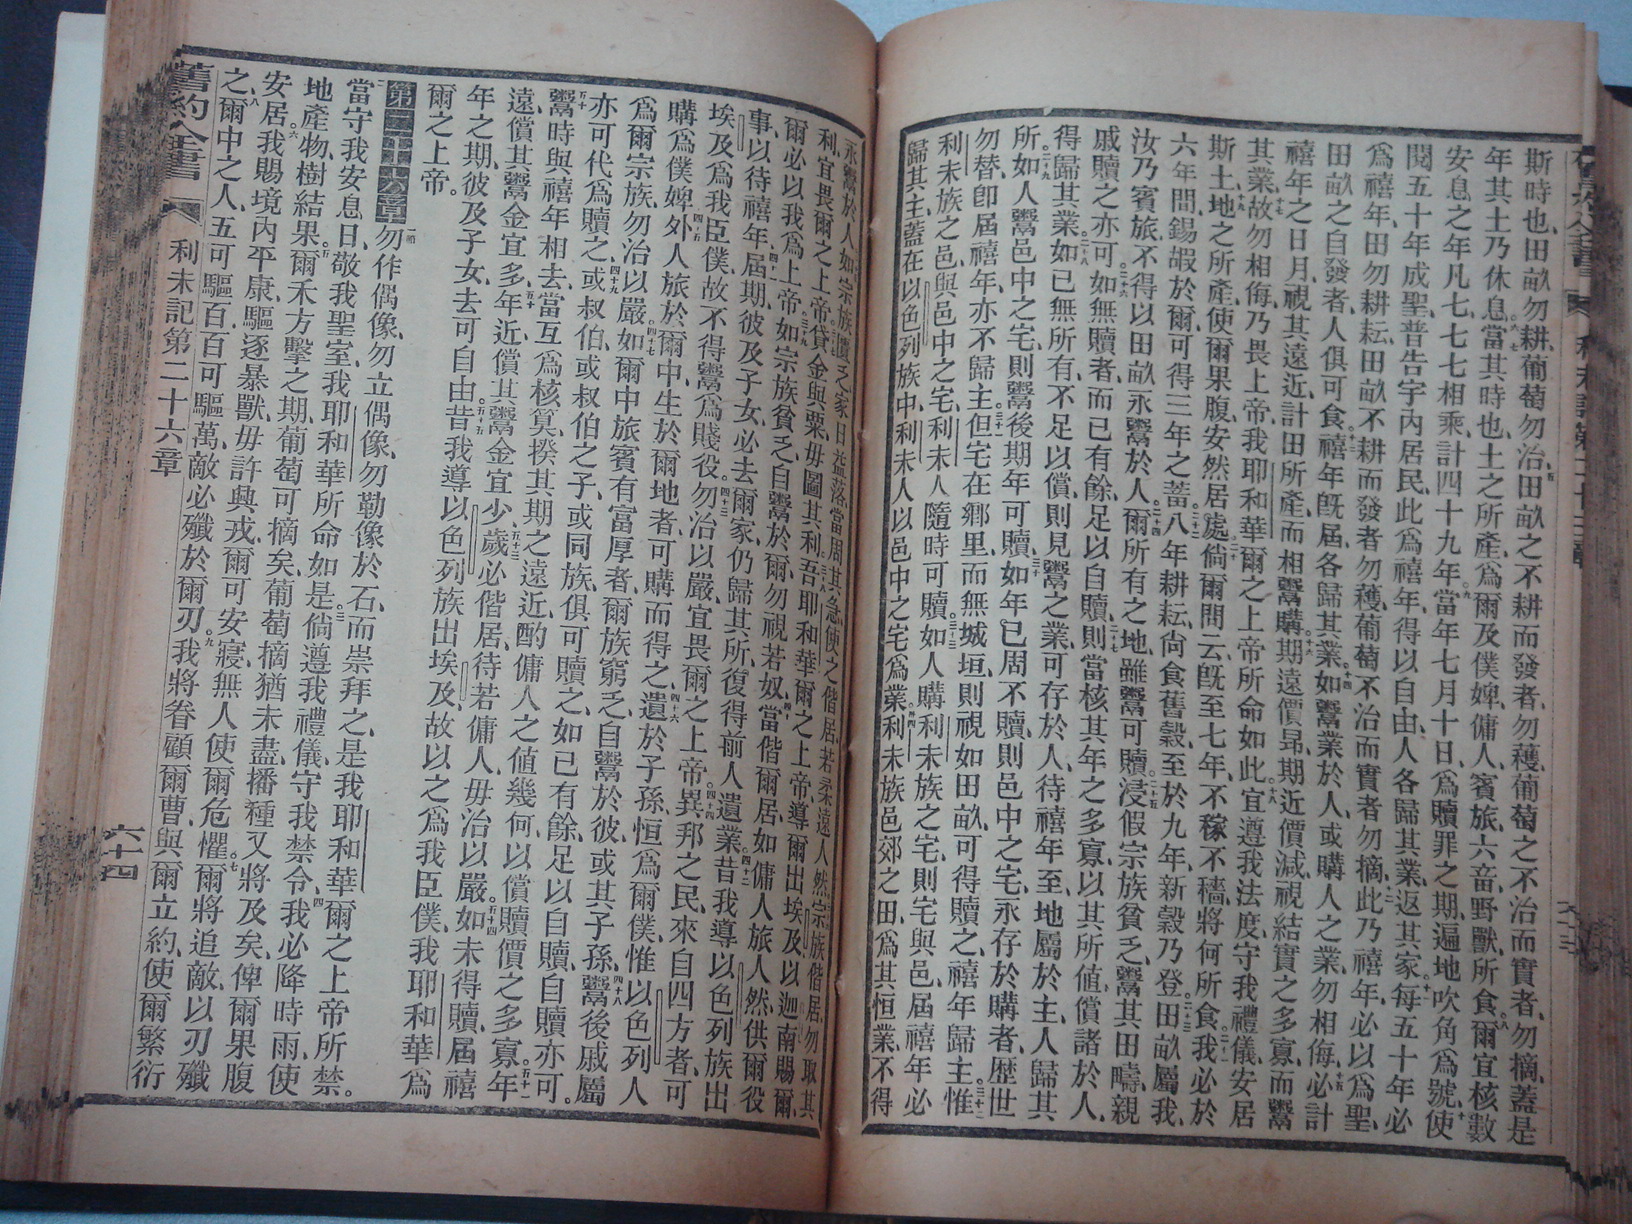 斯時也、田畝勿耕、葡萄勿治、五田畝之不耕而發者、勿穫、葡萄之不治而實者、勿摘、蓋是
年其土乃休息、六當其時也、七土之所產、爲爾及僕婢、傭人、賓旅、六畜、野獸所食。八爾宜核數
安息之年、凡七、七七相乘、計四十九年、九當年七月十日、爲贖罪之期、遍地吹角爲號、十使
閱五十年成聖、普告宇內居民、此爲禧年、得以自由、人各歸其業、返其家。十一每五十年必
爲禧年、田勿耕耘、田畝不耕而發者勿穫、葡萄不治而實者勿摘、十二此乃禧年、必以爲聖、
田畝之自發者、人俱可食、十三禧年旣屆、各歸其業。十四如鬻業於人、或購人之業、勿相侮、十五必計
禧年之日月、視其遠近、計田所產、而相鬻購、十六期遠價昂、期近價減、視結實之多寡、而鬻
其業、十七故勿相侮、乃畏上帝、我耶和華爾之上帝所命如此。十八宜遵我法度、守我禮儀、安居
斯土、十九地之所產、使爾果腹、安然居處。二十倘爾間云、旣至七年、不稼不穡、將何所食。二十一我必於
六年間、錫嘏於爾、可得三年之蓄、二十二八年耕耘、尙食舊穀、至於九年、新穀乃登。二十三田畝屬我、
汝乃賓旅、不得以田畝永鬻於人。二十四爾所有之地、雖鬻可贖。二十五浸假宗族貧乏、鬻其田疇、親
戚贖之亦可。二十六如無贖者、而已有餘、足以自贖、二十七則當核其年之多寡、以其所値償諸於人、
得歸其業、二十八如已無所有、不足以償、則見鬻之業、可存於人、待禧年至、地屬於主、人歸其
所。二十九如人鬻邑中之宅、則鬻後期年可贖、三十如年已周不贖、則邑中之宅、永存於購者、歷世
勿替、卽屆禧年、亦不歸主。三十一但宅在鄉里、而無城垣、則視如田畝、可得贖之、禧年歸主。三十二惟
利未族之邑、與邑中之宅、利未人隨時可贖、三十三如人購利未族之宅、則宅與邑、屆禧年必
歸其主、蓋在以色列族中、利未人以邑中之宅爲業。三十四利未族邑郊之田、爲其恒業、不得
永鬻於人。三十五如宗族匱乏、家日益落、當周其急、使之偕居、若遠人然、三十六宗族偕居、勿取其
利、宜畏爾之上帝。三十七貸金與粟、毋圖其利。三十八吾耶和華爾之上帝、導爾出埃及、以迦南賜爾、
爾必以我爲上帝。三十九如宗族貧乏、自鬻於爾、勿視若奴、四十當偕爾居、如傭人旅人然、供爾役
事、以待禧年、四十一屆期、彼及子女、必去爾家、仍歸其所、復得前人遺業。四十二昔我導以色列族出
埃及、爲我臣僕、故不得鬻爲賤役、四十三勿治以嚴、宜畏爾之上帝。四十四異邦之民、來自四方者、可
購爲僕婢、四十五外人旅於爾中、生於爾地者、可購而得之、四十六遺於子孫、恒爲爾僕、惟以色列人
爲爾宗族、勿治以嚴。四十七如爾中旅賓有富厚者、爾族窮乏、自鬻於彼、或其子孫、四十八鬻後戚屬
亦可代爲贖之、四十九或叔伯、或叔伯之子、或同族、俱可贖之、如已有餘、足以自贖、自贖亦可。
五十鬻時與禧年相去、當互爲核算、揆其期之遠近、酌傭人之値幾何、以償贖價之多寡、五十一年
遠、償其鬻金宜多、五十二年近、償其鬻金宜少、五十三歲必偕居、待若傭人、毋治以嚴。五十四如未得贖、屆禧
年之期、彼及子女、去可自由。五十五昔我導以色列族出埃及、故以之爲我臣僕、我耶和華爲
爾之上帝。
第二十六章 一勿作偶像、勿立偶像、勿勒像於石、而崇拜之、是我耶和華爾之上帝所禁。
二當守我安息日、敬我聖室、我耶和華所命如是。三倘遵我禮儀、守我禁令、四我必降時雨、使
地產物、樹結果。五爾禾方擊之期、葡萄可摘矣、葡萄摘猶未盡、播種又將及矣、俾爾果腹
安居。六我賜境內平康、驅逐暴獸、毋許興戎、爾可安寢、無人使爾危懼。七爾將追敵、以刃殲
之、八爾中之人、五可驅百、百可驅萬、敵必殲於爾刃。九我將眷顧爾曹、與爾立約、使爾繁衍
舊約全書 利未記第二十六章 六十四